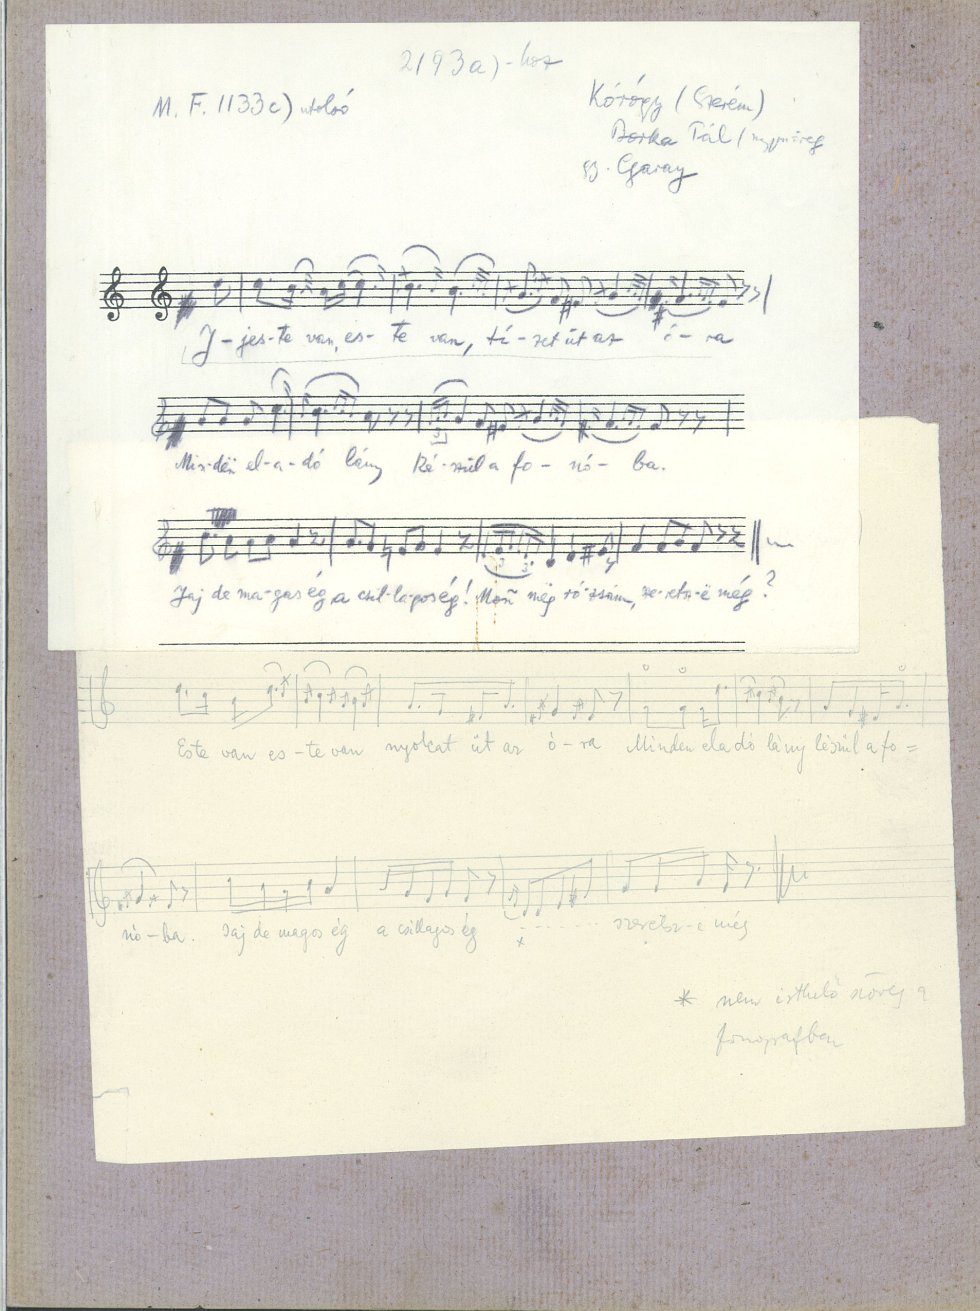 2193a)-hoz
M. F. 1133c) utolsó
Kórógy (Szerém)
Borka Pál
gy. Garay
I-jes-te van, es-te van, tí-zet üt az ó-ra
Min-dën el-a-dó lány ké-szül a fo-nó-ba.
Jaj de ma-gas ég, a csil-la-gos ég! Mon még ró-zsám, sze-retsz-ë még?
Este van es-te van nyolcat üt az ó-ra Minden eladó lány készül a fo=
nó-ba. Jaj de magos ég a csillagos ég x ....... szeretsz-e még
* nem érthető szöveg a
fonográfban